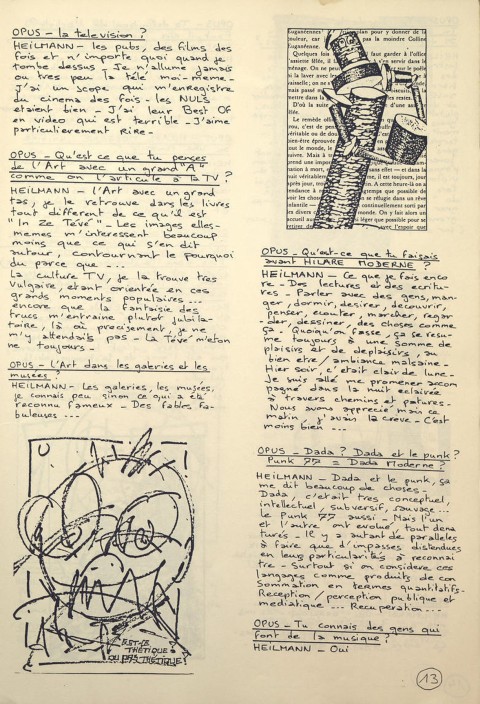 OPUS - la television ?
HEILMANN - les pubs, des films des
fois et n'importe quoi quand je
tombe dessus - Je n'allume jamais
ou tres peu la télé moi-meme -
J'ai un scope qui m'enregistre
du cinema des fois - les NULS
etaient bien - J'ai leur Best OF
en video qui est terrible - J'aime
particulierement RiRe -
OPUS - Qu'est ce que tu penses
de l'Art avec un grand "A"
comme on l'articule à la TV ?
HEILMANN - l'Art avec un grand
tas, je le retrouve dans les livres
tout different de ce qu'il est
"In Ze Tévé" - Les images elles-
memes m'interessent beaucoup
moins que ce qui s'en dit
autour, contournant le pourquoi
du parce que ---
La culture TV, je la trouve tres
vulgaire, etant orientée en ces
grands moments populaires ---
encore que la fantaisie des
trucs m'entraine plutot jubila-
toire, là où precisement, je ne
m'y attendais pas - La Tévé m'eton
ne toujours -
OPUS - L'Art dans les galeries et les
musées ?
HEILMANN - Les galeries, les musées,
je connais peu sinon ce qui a été
reconnu fameux - Des fables fa-
buleuses ---
EST-CE
THÉTIQUE
OU PAS THÉTIQUE ?
OPUS - Qu'est-ce que tu faisais
avant HILARE MODERNE ?
HEILMANN - Ce que je fais enco
re - Des lectures et des ecritu-
res - Parler avec des gens, man-
ger, dormir, desirer, decouvrir,
penser, ecouter, marcher, regar
-der, dessiner, des choses comme
ça - Quoiqu'on fasse, ça se resu-
me toujours à une somme de
plaisirs et de deplaisirs, au
bien etre / ambiance malsaine -
Hier soir, c'etait clair de lune -
Je suis allé me promener accom
pagné dans la nuit eclairée
à travers chemins et patures -
Nous avons apprecié mais ce
matin, j'avais la creve - C'est
moins bien ---
OPUS - Dada ? Dada et le punk ?
Punk 77 = Dada Moderne ?
HEILMANN - Dada et le punk, ça
me dit beaucoup de choses -
Dada, c'etait tres conceptuel,
intellectuel, subversif, sauvage ---
Le Punk 77 aussi - Mais l'un
et l'autre ont evolué, tout dena
turés - Il y a autant de paralleles
à faire que d'impasses distendues
en leurs particularités à reconnai
tre - Surtout si on considere ces
langages comme produits de con
sommation en termes quantitatifs -
Reception / perception publique et
mediatique --- Recuperation ---
OPUS - Tu connais des gens qui
font de la musique ?
HEILMANN - Oui
13